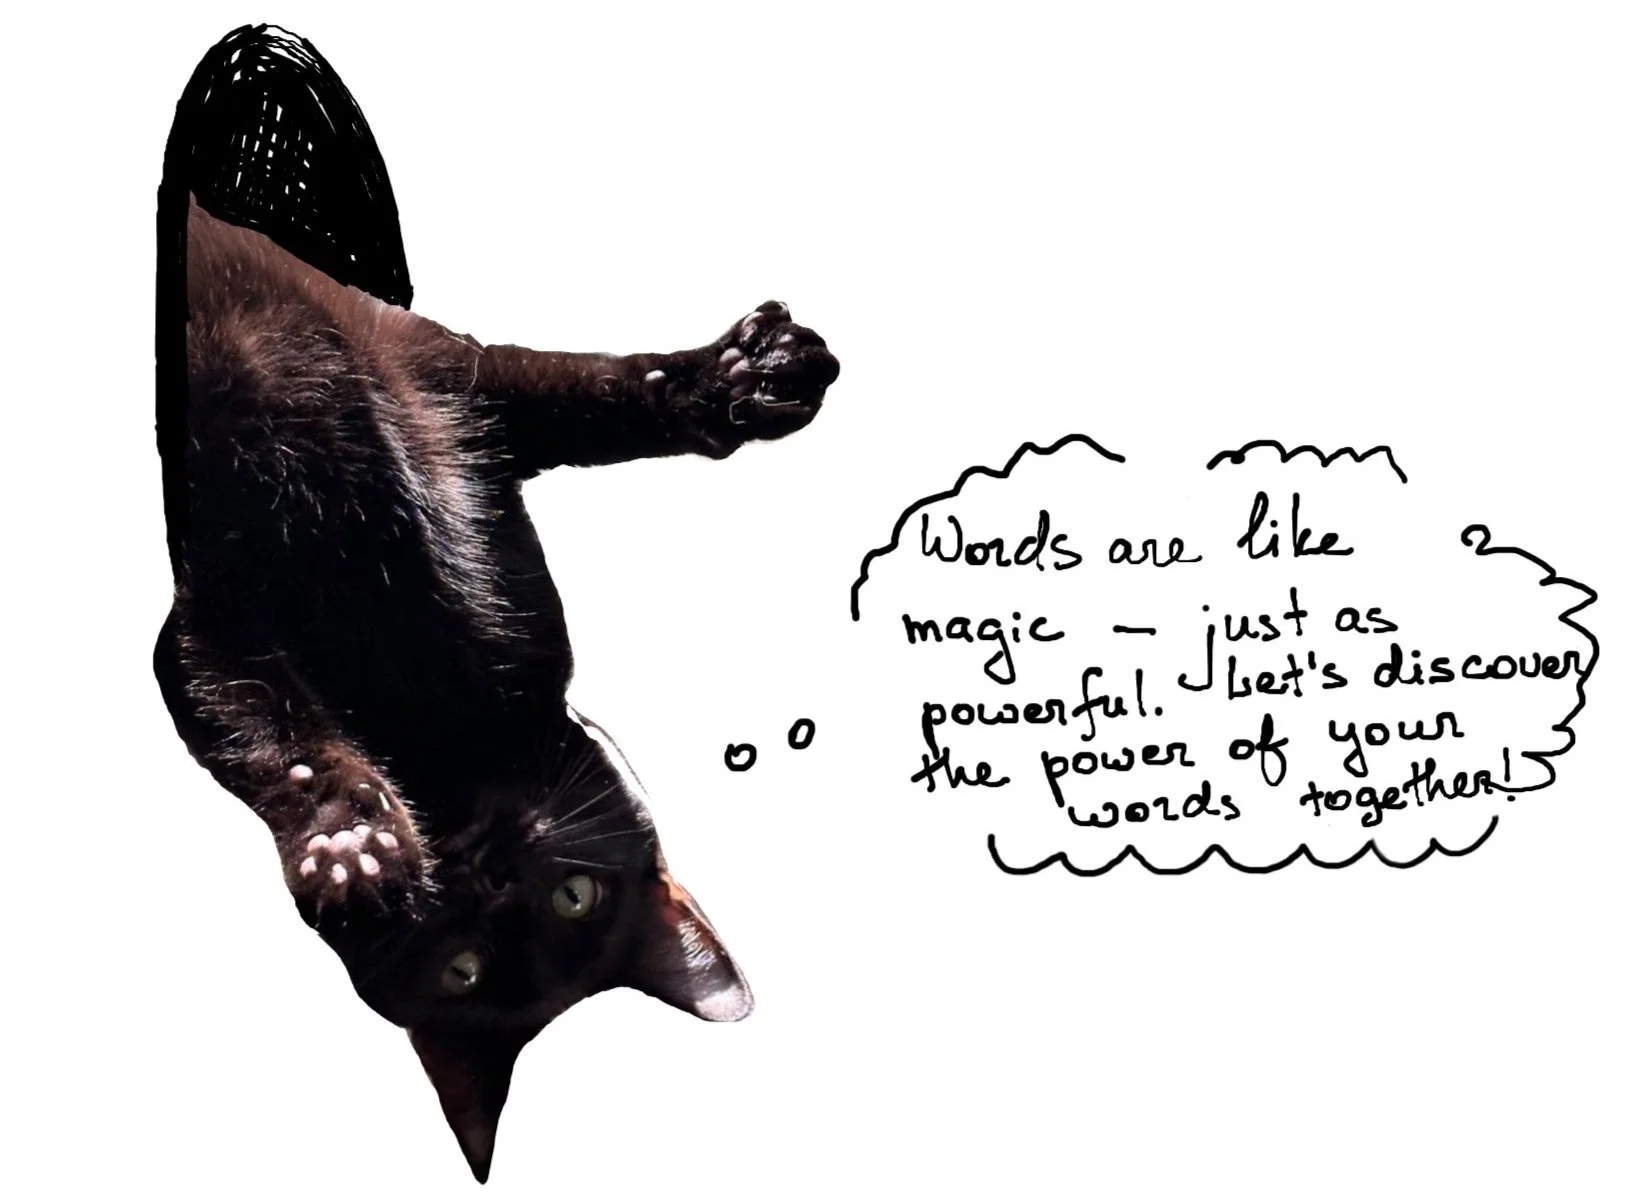 Words are like
magic – just as
powerful. Let's discover
the power of your
words together!